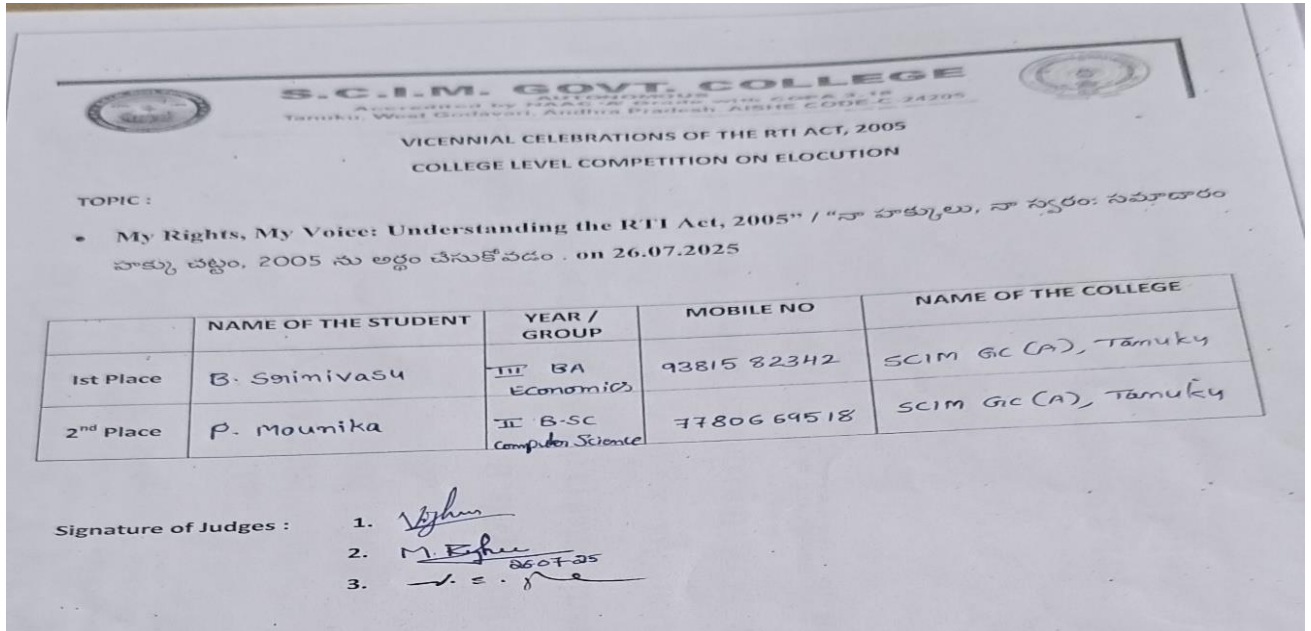 S.C.I.M. GOVT. COLLEGE
AUTONOMOUS
Accredited by NAAC 'A' Grade with CGPA 3.18
Tanuku, West Godavari, Andhra Pradesh, AISHE CODE-C-24205
VICENNIAL CELEBRATIONS OF THE RTI ACT, 2005
COLLEGE LEVEL COMPETITION ON ELOCUTION
TOPIC :
• My Rights, My Voice: Understanding the RTI Act, 2005” / “నా హక్కులు, నా స్వరం: సమాచారం
హక్కు చట్టం, 2005 ను అర్థం చేసుకోవడం . on 26.07.2025
NAME OF THE STUDENT YEAR / GROUP MOBILE NO NAME OF THE COLLEGE
Ist Place B. Srinivasu III BA Economics 93815 82342 SCIM GC (A), Tanuku
2nd Place P. Mounika II B-SC Computer Science 77806 69518 SCIM GC (A), Tanuku
Signature of Judges : 1.
2. M.
26-07-25
3.